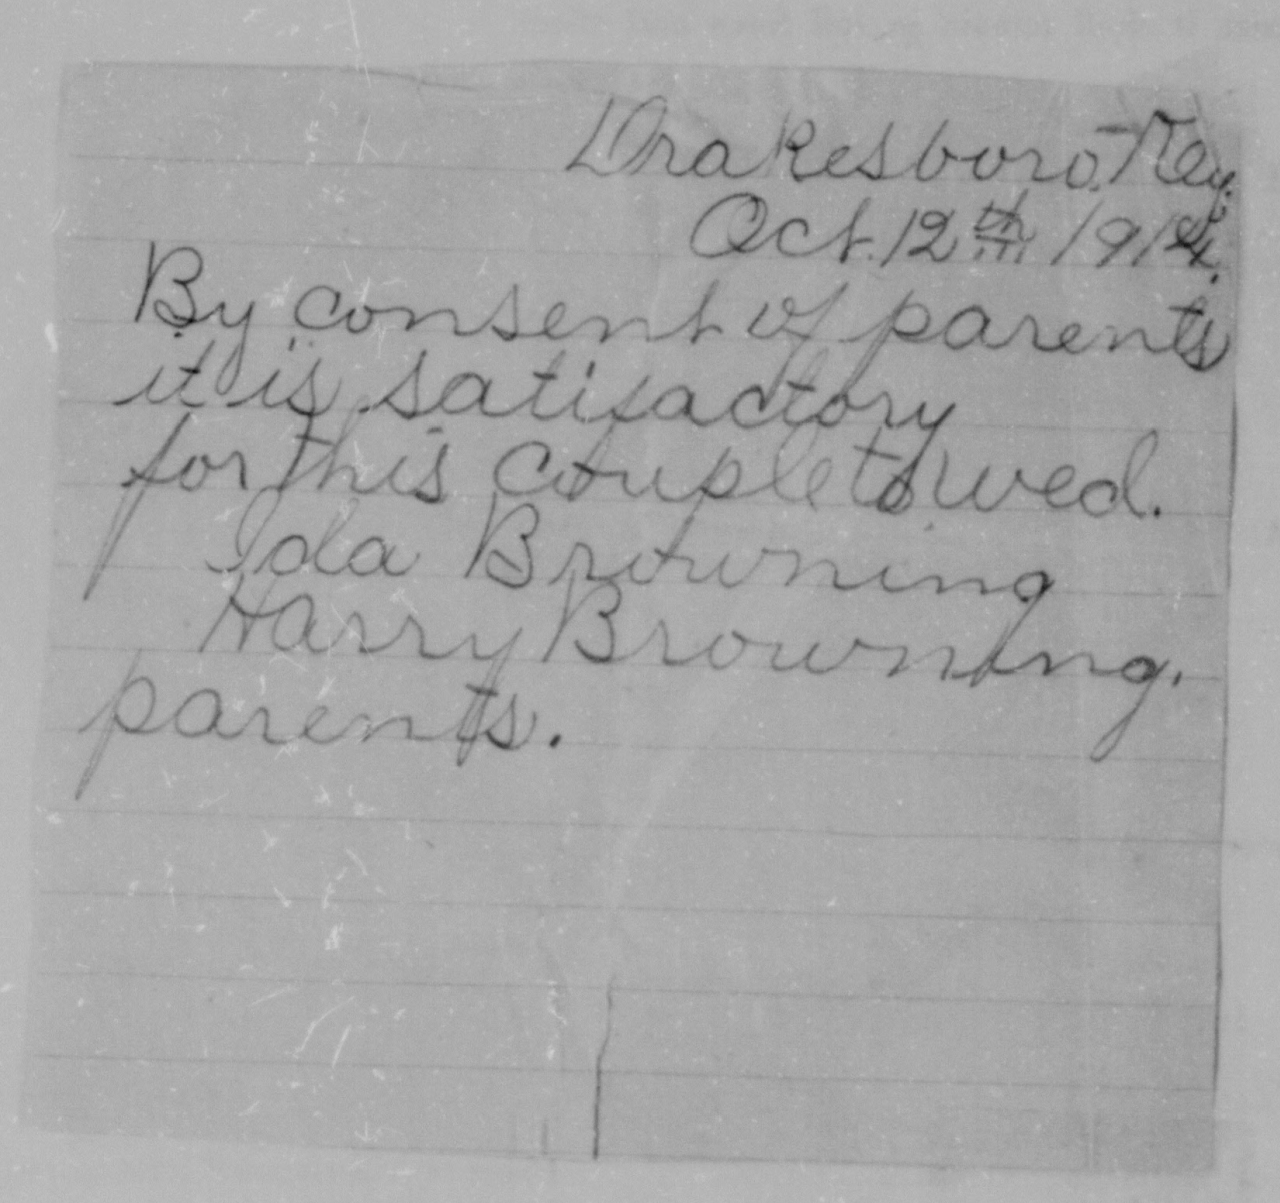 Drakesboro, Key.
Oct. 12th 1914.
By consent of parents
it is satifactory
for this couple to wed.
Ida Browning
Harry Browning.
parents.